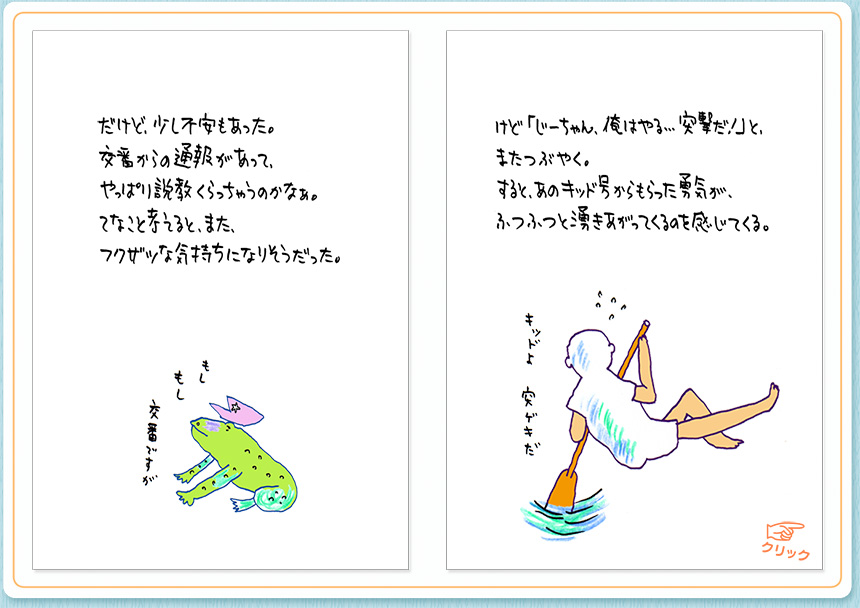 だけど、少し不安もあった。
交番からの通報があって、
やっぱり説教くらっちゃうのかなぁ。
てなこと考えてると、また、
フクザツな気持ちになりそうだった。
もし
もし
交番ですが
けど「じーちゃん、俺はやる…突撃だ！」と、
またつぶやく。
すると、あのキッド号からもらった勇気が、
ふつふつと湧きあがってくるのを感じてくる。
キッドよ
突ゲキだ
クリック